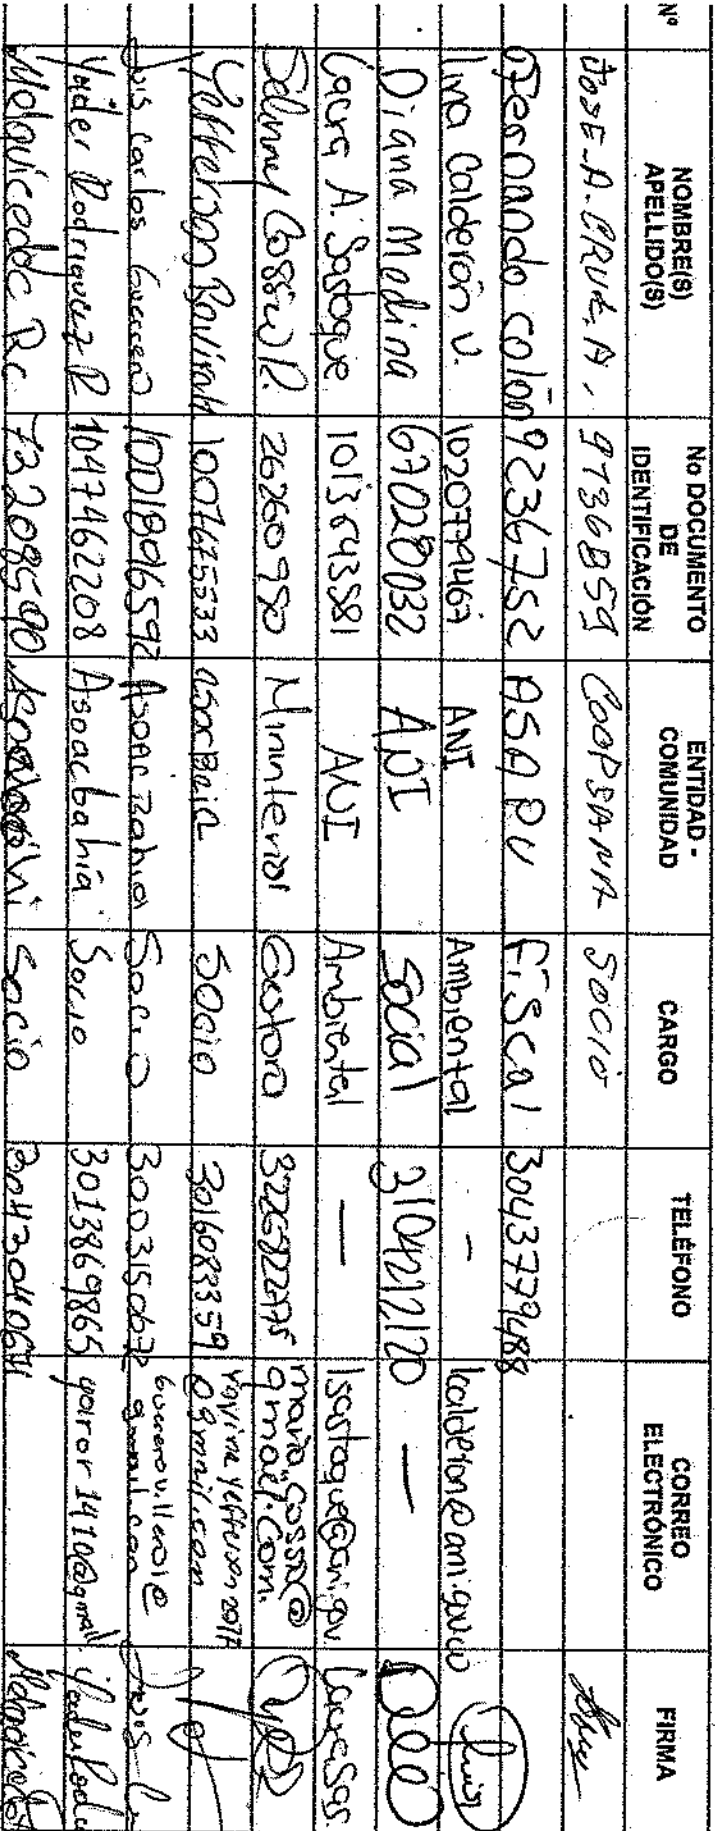 Nº NOMBRE(S) APELLIDO(S) No DOCUMENTO DE IDENTIFICACIÓN ENTIDAD - COMUNIDAD CARGO TELÉFONO CORREO ELECTRÓNICO FIRMA
JOSE-A-CRUZ.A. 9736859 COOPSANA SOCIO
Fernando colón 9236752 ASAPU Fiscal 3043779488
lina Calderón V. 1020774467 ANI Ambiental - lcalderon@ani.gov.co
Diana Medina 67028032 ANI social 3104212120 —
Laura A. Sastoque 1013643581 ANI Ambiental — lsastoque@ani.gov. Laura Sas.
Cossio R. 26260950 Mininterior Gestora maria cossio@gmail.com.
1007675533 asocBaia Socio 3016083359 @gmail.com
Luis Carlos Guerrero 1001896592 Socio 3003150672 @gmail.com
Yader Rodriguez R 1047462208 Asoacbahía Socio 3013869865 yaror1410@gmail.
Melquicedec Rc. 73208590 Socio 3043040674